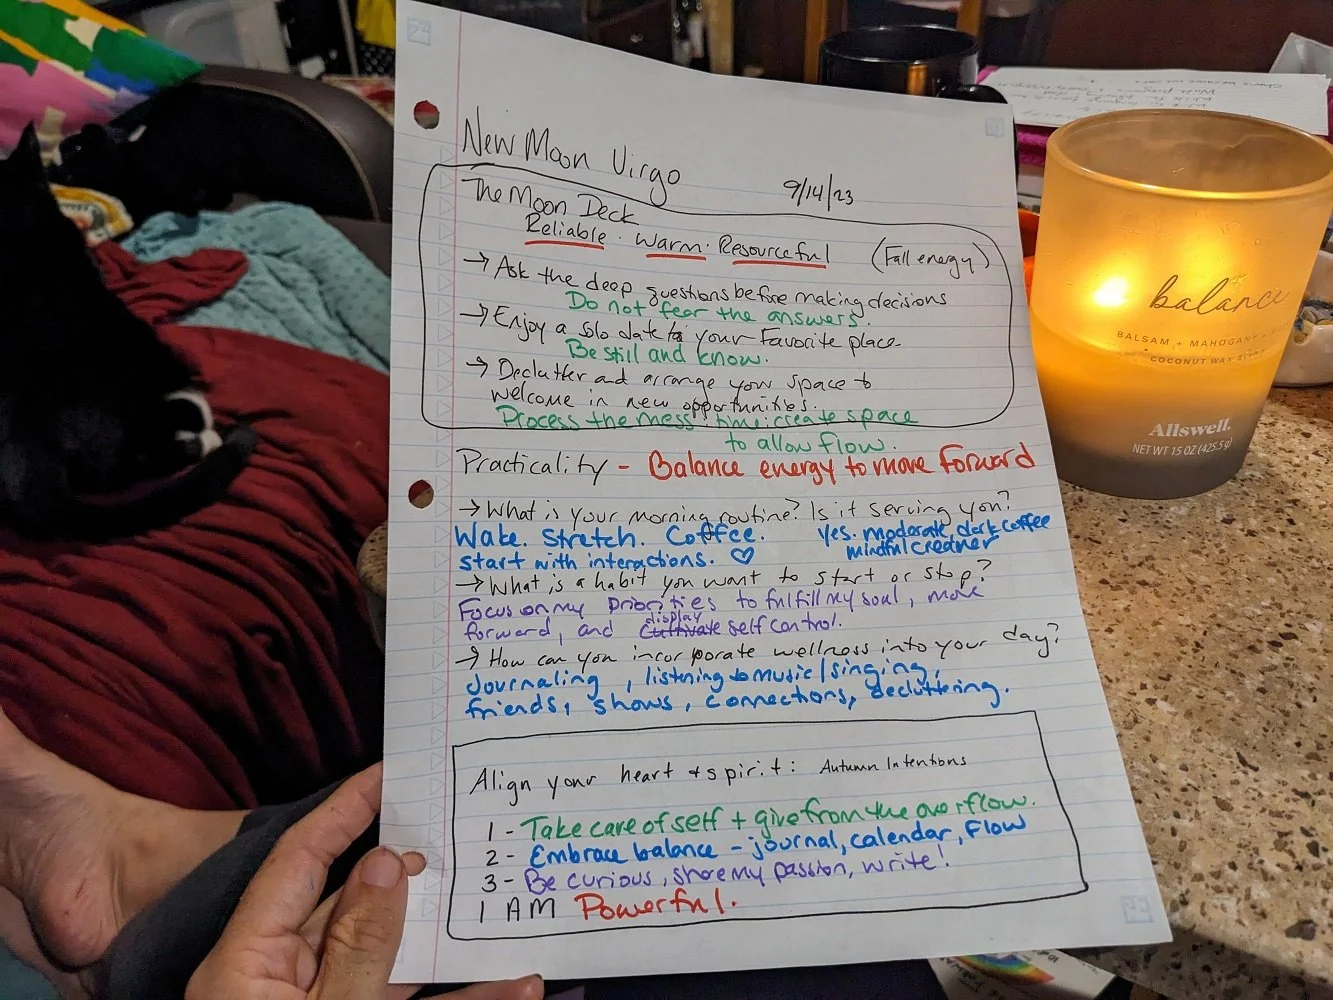 New Moon Virgo
9/14/23
The Moon Deck
Reliable · Warm · Resourceful (Fall energy)
→ Ask the deep questions before making decisions
Do not fear the answers.
→ Enjoy a solo date to your Favorite place
Be still and know.
→ Declutter and arrange your space to
welcome in new opportunities.
Process the mess · time · create space
to allow flow.
Practicality - Balance energy to move forward
→ What is your morning routine? Is it serving you?
Wake. Stretch. Coffee. Yes. moderate, dark coffee
start with interactions. ♡ mindful creamer
→ What is a habit you want to start or stop?
Focus on my priorities to fulfill my soul, move
display
forward, and cultivate self control.
→ How can you incorporate wellness into your day?
Journaling, listening to music/singing,
friends, shows, connections, decluttering.
Align your heart + spirit: Autumn Intentions
1 - Take care of self + give from the overflow.
2 - Embrace balance - journal, calendar, flow
3 - Be curious, share my passion, write!
I AM Powerful.
balance
BALSAM + MAHOGANY +
COCONUT WAX
Allswell.
NET WT 15 OZ (425.5g)